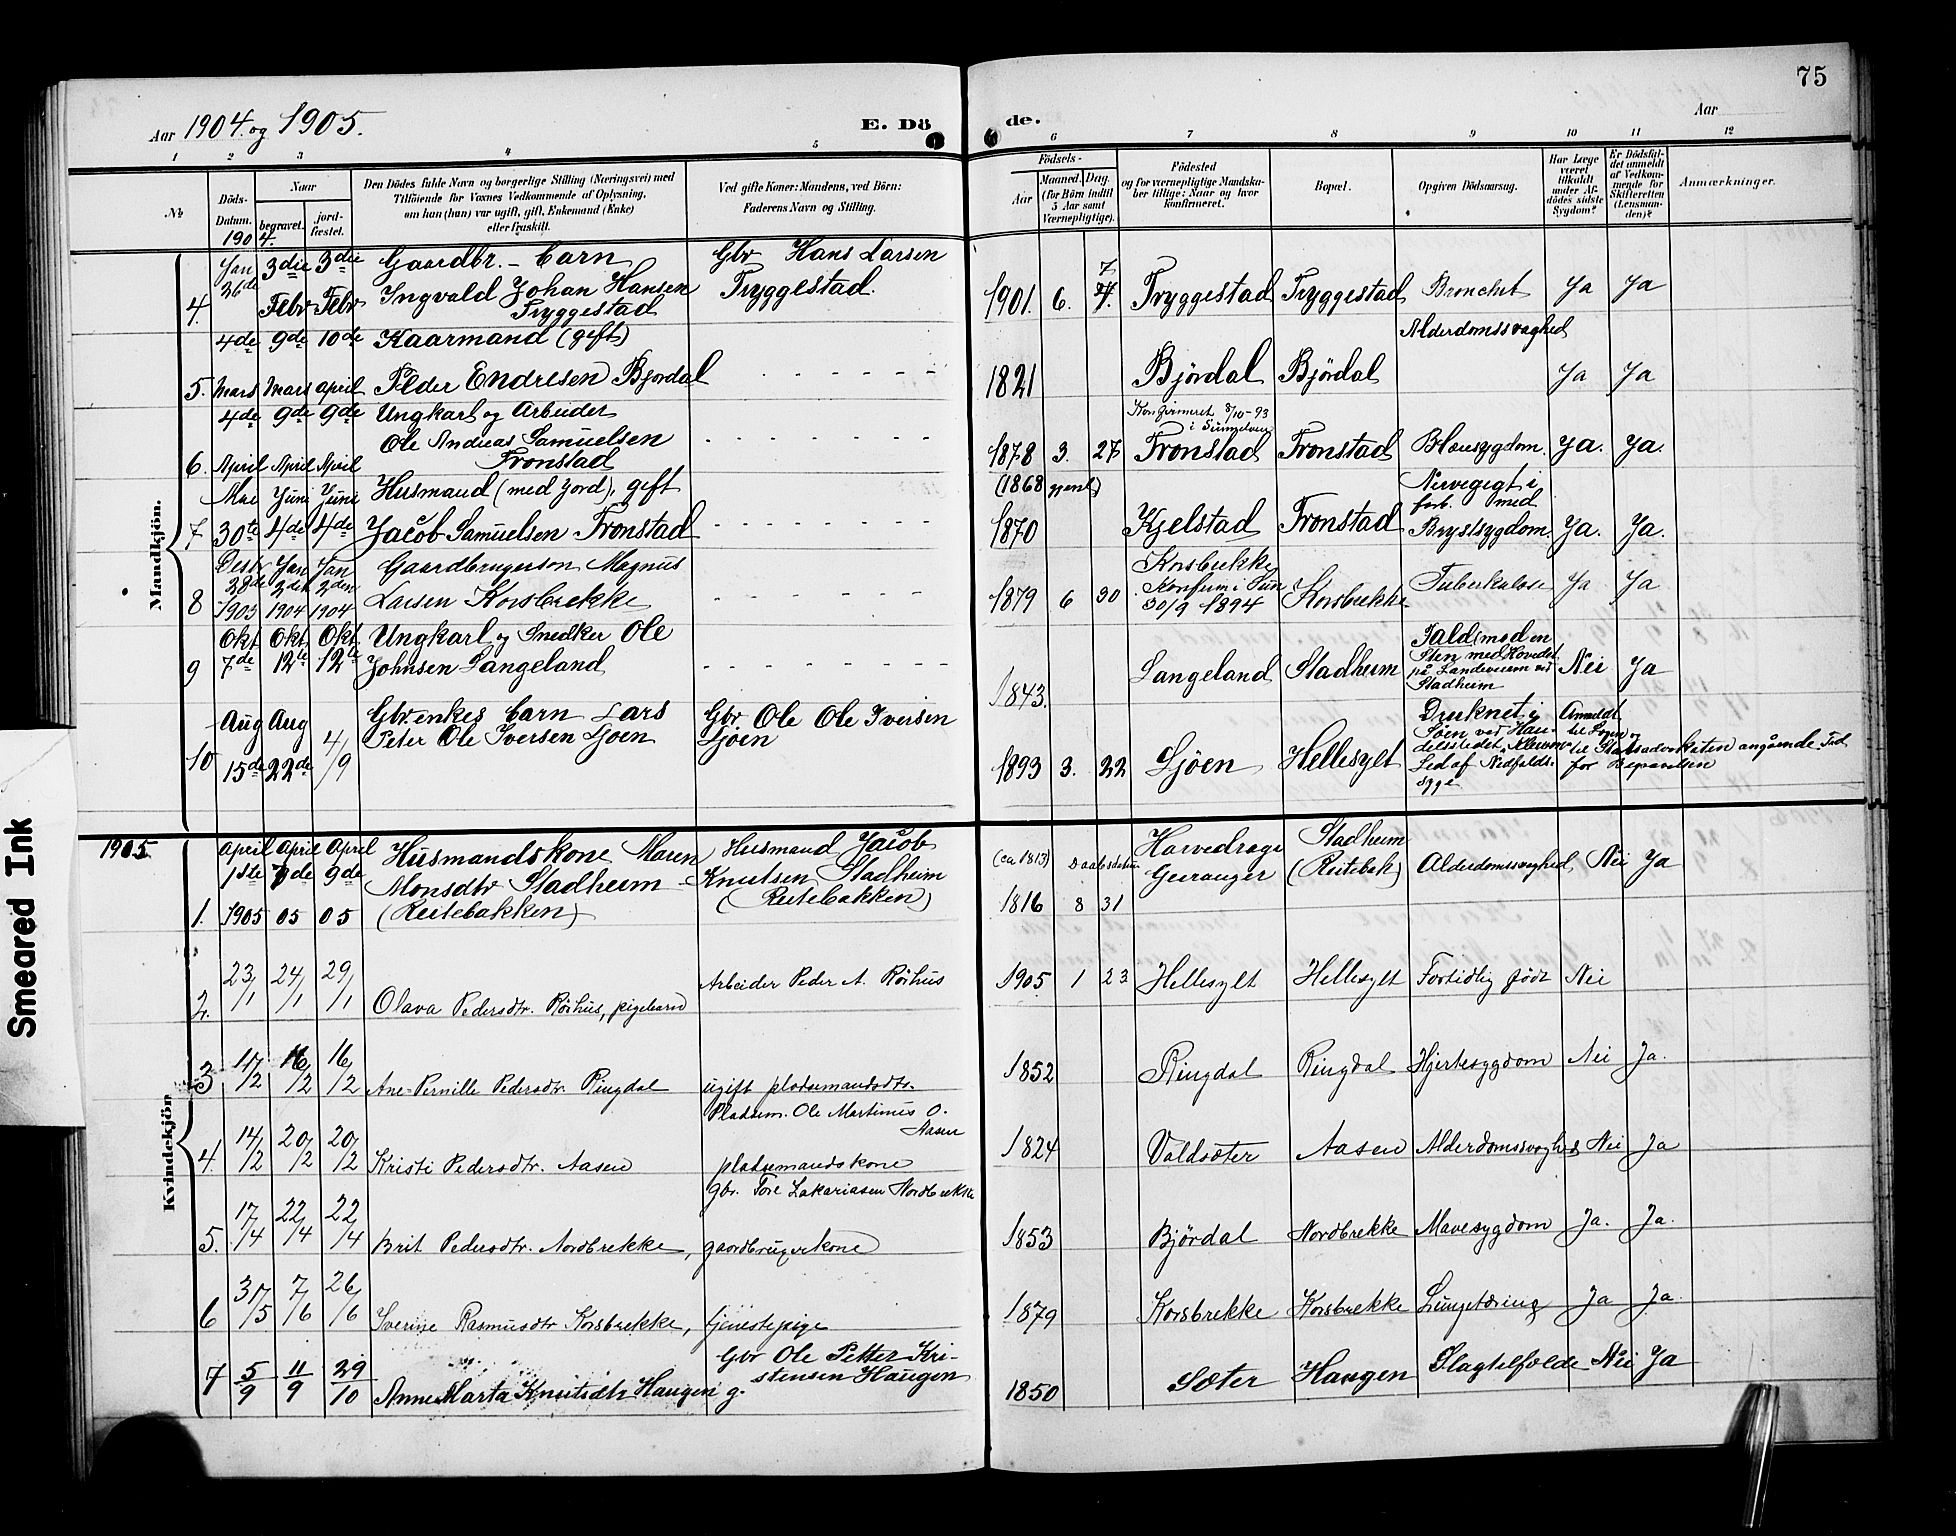 75
Aar 1904. og 1905.
E. Dö
de.
Aar
1 2 3 4 5 6 7 8 9 10 11 12
№
Döds-
Datum.
1904.
Naar
begravet.
jord-
fæstet.
Den Dödes fulde Navn og borgerlige Stilling (Næringsvei) med
Tilföiende for Voxnes Vedkommende af Oplysning,
om han (hun) var ugift, gift, Enkemand (Enke)
eller fraskilt.
Ved gifte Koner: Mandens, ved Börn:
Faderens Navn og Stilling.
Födsels-
Aar
Maaned. Dag.
(for Börn indtil
5 Aar samt
Værnepligtige).
Födested
og for værnepligtige Mandska-
ber tillige: Naar og hvor
konfirmeret.
Bopæl.
Opgiven Dödsaarsag.
Har Læge
været
tilkaldt
under Af-
dödes sidste
Sygdom?
Er Dödsfal-
det anmeldt
af Vedkom-
mende for
Skifteretten
(Lensman-
den)?
Anmærkninger.
Mandkjön.
4. Jan 26de 3die Febr 3de Febr Gaardbr. - barn Ingvald Johan Hansen Tryggestad Gbr Hans Larsen Tryggestad. 1901. 6. 7 Tryggestad Tryggestad Bronchit Ja Ja
5. 4de Mars 9de Mars 10de April Kaarmand (gift) Peder Endresen Bjørdal 1821 Björdal Björdal Alderdomssvaghed Ja Ja
6. 4de April 9de April 9de April Ungkarl og Arbeider Ole Andreas Samuelsen Tronstad 1878 3. 27 Konfirmeret 8/10-93 i Tronstad Tronstad Ja. Ja.
7 Mai 30te Juni 4de Juni 4de Husmand (med Jord), gift Jacob Samuelsen Tronstad (1868 ) 1870 Kjelstad Tronstad Nervegigt i forb. med Brystsygdom. Ja. Ja.
8 Desbr 28de 1903 Jan 2den 1904 Jan 2den 1904 Gaardbrugerson Magnus Larsen Korsbrekke 1879 6 30 Korsbrekke Konfirm i Sun 30/9 1894 Korsbrekke Tuberkulose Ja Ja
9 Okt 7de Okt 12te Okt. 12te Ungkarl og Snedker Ole Johnsen Langeland 1843. Langeland Stadheim Faldt mod en Sten med Hovedet på Landeveien ved Stadheim Nei Ja
10 Aug 15de Aug 22de 4/9 Gbr.enkes barn Lars Peter Ole Iversen Ljøen Gbr Ole Ole Iversen Ljøen 1893 3. 22 Ljöen Hellesylt Druknet i Søen ved Han- delsstedet Led af Nedfalds- syge Anmeldt til Lensm og til Statsadvokaten angående Tid for Begravelsen
1905.
Kvindekjön
1. April 1ste 1905 April 7de 05 April 9de 05 Husmandskone Maren Monsdtr Stadheim (Reitebakken) Husmand Jacob Knutsen Stadheim (Reitebakken) (ca 1813) Daabsdatum 1816 8 31 Geiranger Stadheim (Reitebak) Alderdomssvaghed Nei Ja
2. 23/1 24/1 29/1 Olava Pedersdtr. Röihus, pigebarn Arbeider Peder A. Röihus 1905 1 23 Hellesylt Hellesylt Fortidlig født Nei
3 11/2 16/2 16/2 Ane Pernille Pedersdtr Ringdal ugift pladsemandsdtr. 1852 Ringdal Ringdal Hjertesygdom Nei Ja.
4. 14/2 20/2 20/2 Kristi Pedersdtr. Aasen Pladsem. Ole Martinus O. Aasen pladsemandskone 1824 Valdsæter Aasen Alderdomssvaghed Nei Ja
5. 17/4 22/4 22/4 Brit Pedersdtr. Nordbrekke, gbr. Tore Zakariasen Nordbrekke gaardbrugerkone 1853 Björdal Nordbrekke Mavesygdom Ja. Ja.
6 31/5 7/6 26/6 Iverine Rasmusdtr Korsbrekke, tjenestepige 1879 Korsbrekke Korsbrekke Lungetæring Ja Ja.
7 5/9 11/9 29/10 Anne Marta Knutsdtr Haugen g. Gbr Ole Petter Kri- stensen Haugen 1850 Sæter Haugen Slagtilfælde Nei Ja
Smeared Ink